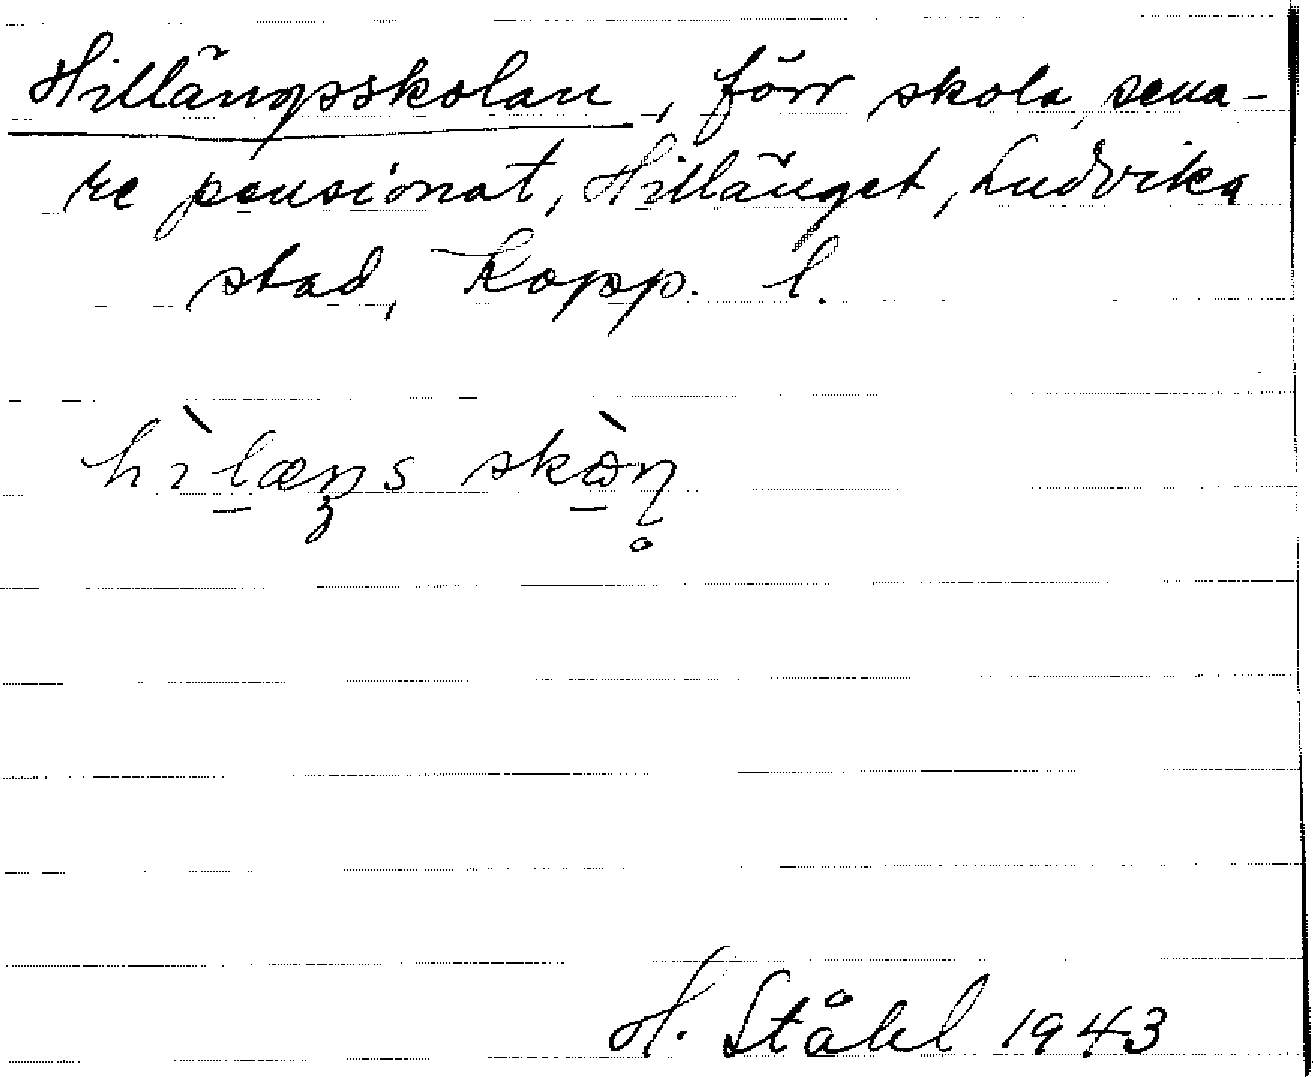 Hillängsskolan, förr skola, sena-
re pensionat, Hillänget, Ludvika
stad, Kopp. l.
H. Ståhl 1943